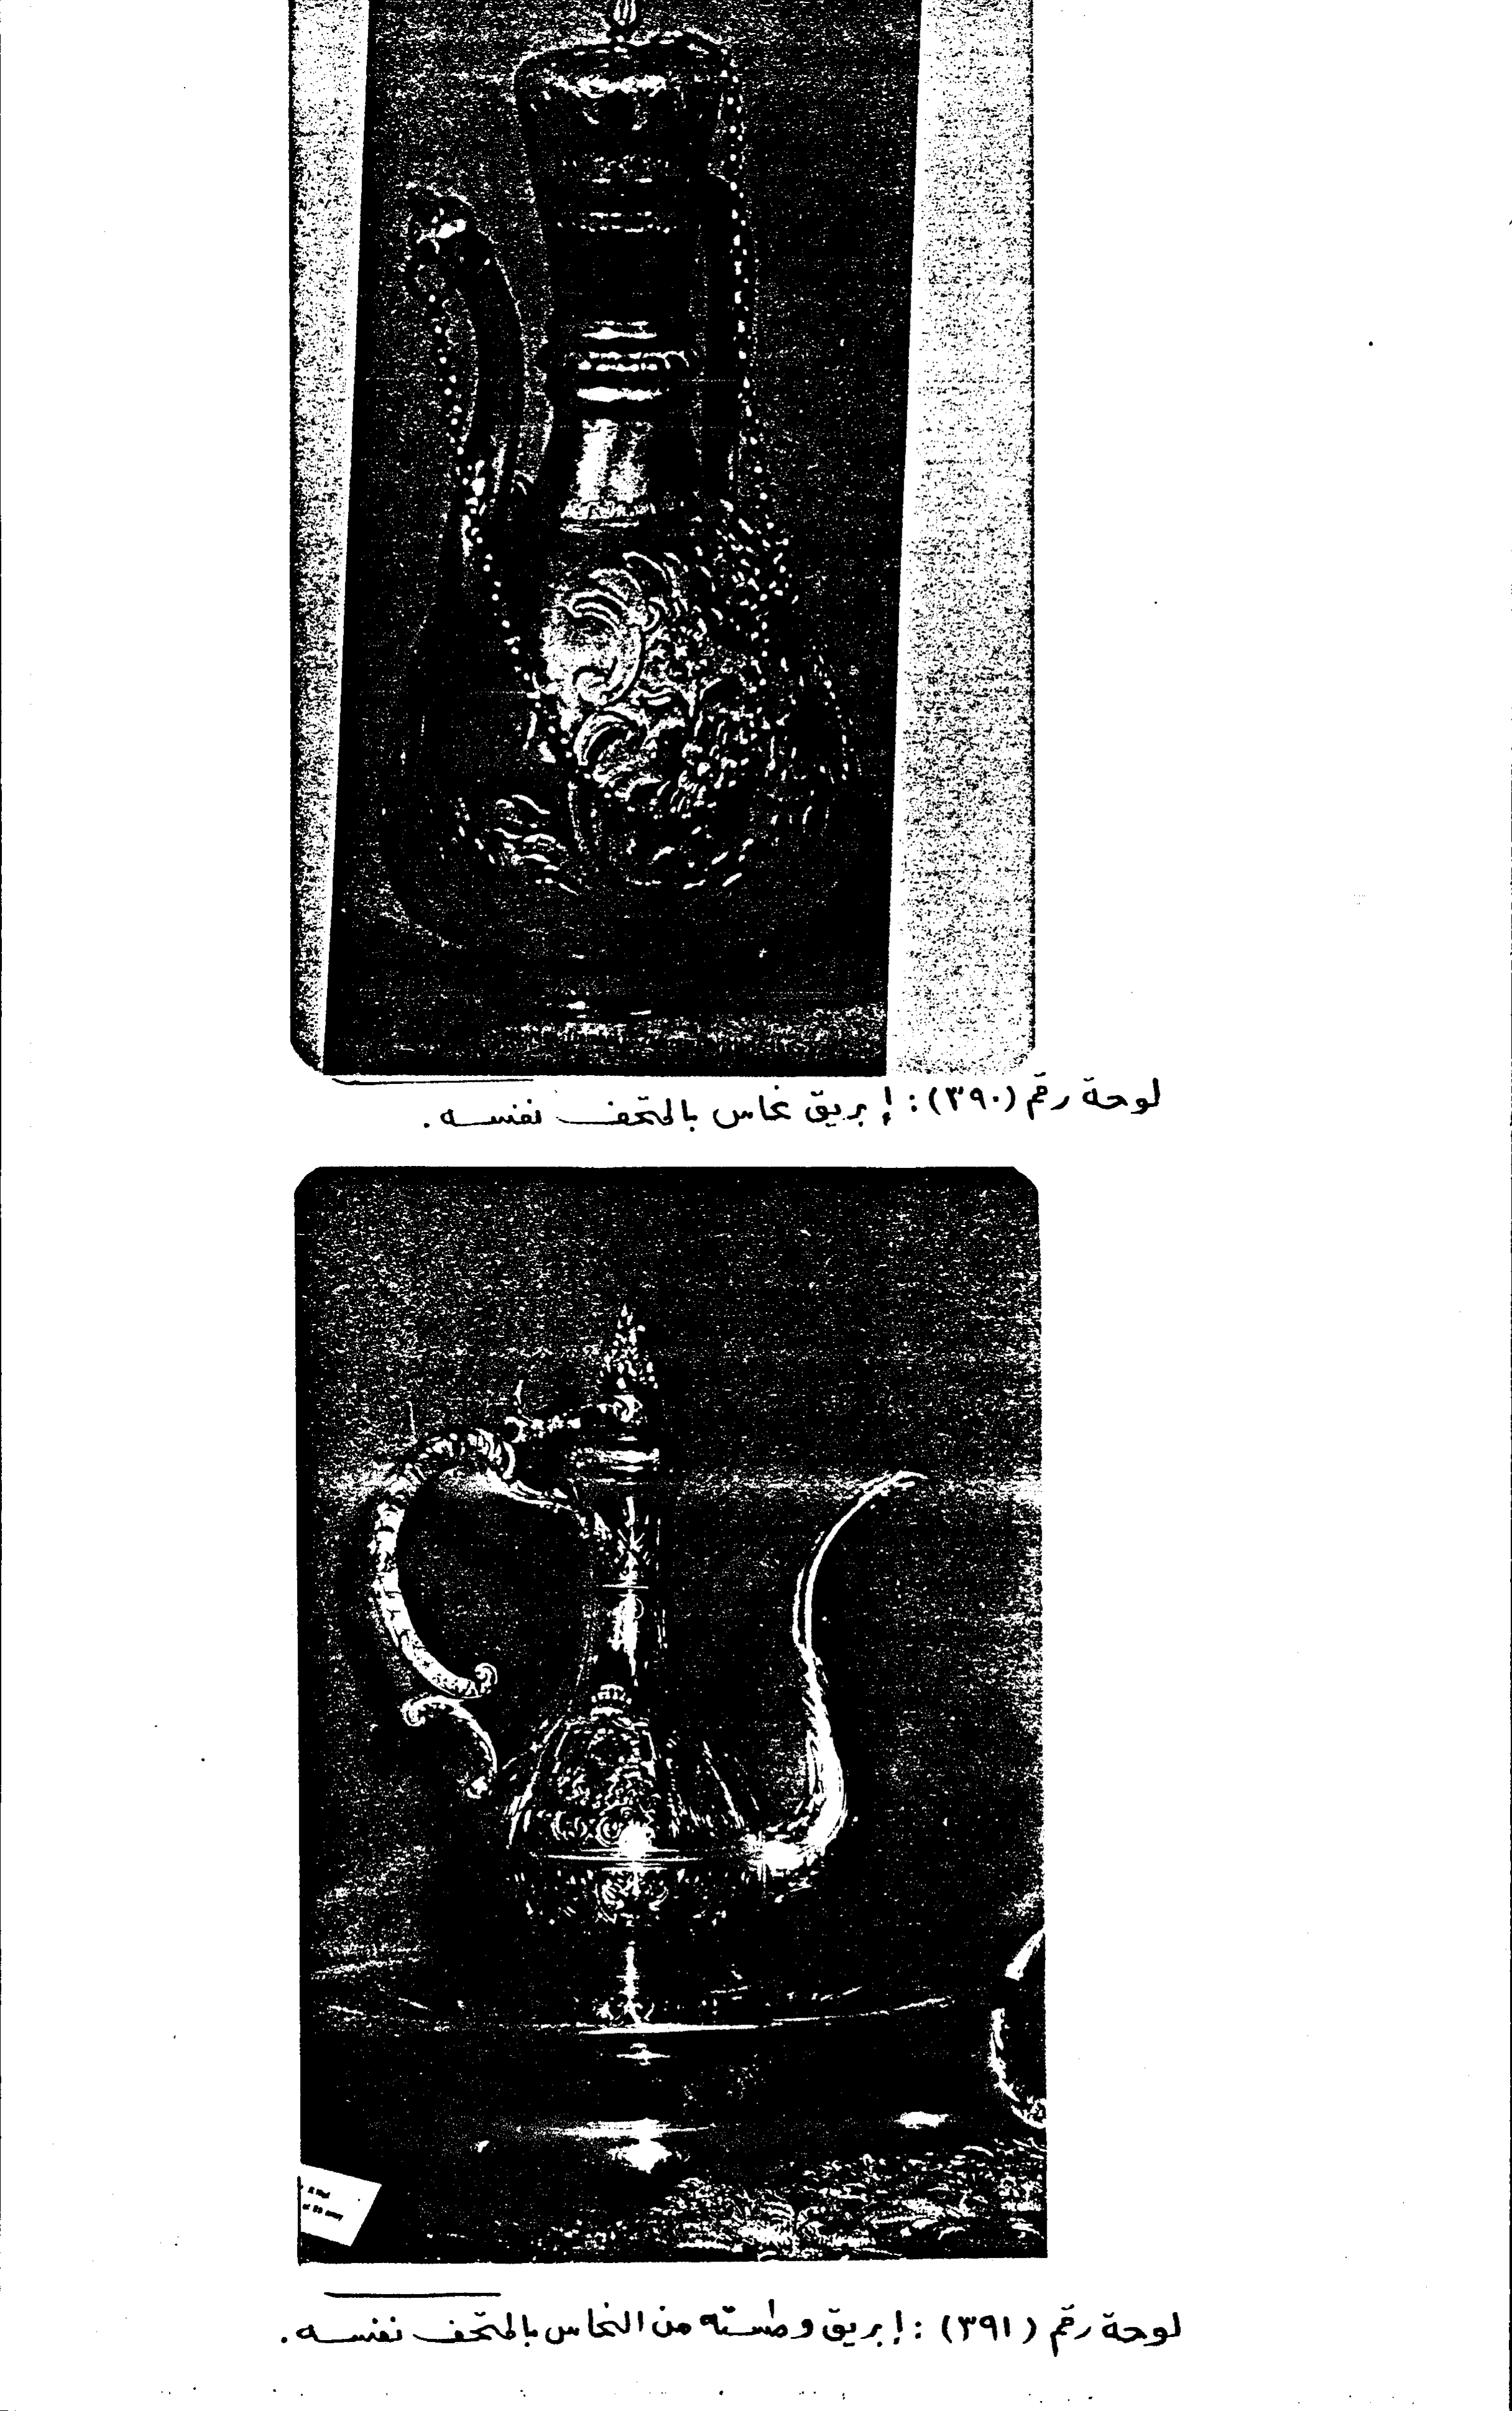 لوحة رقم (٣٩٠): إبريق نحاس بالمتحف نفسه.
لوحة رقم (٣٩١): إبريق وطسته من النحاس بالمتحف نفسه.